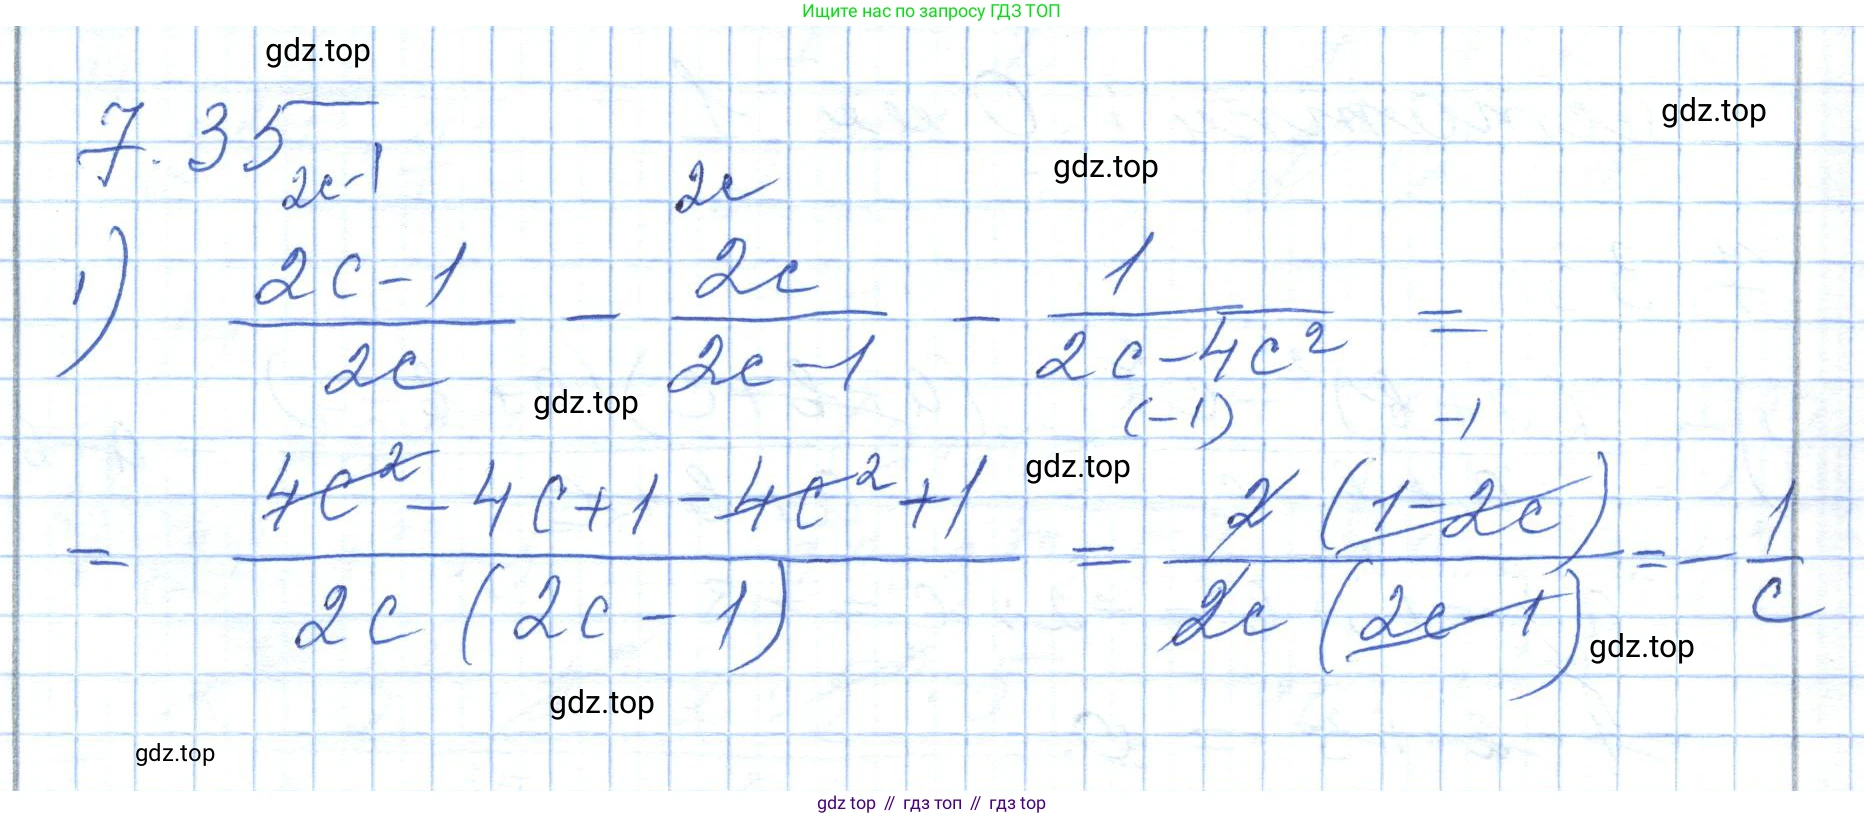 Ищите нас по запросу ГДЗ ТОП
gdz.top
7.35
gdz.top
gdz.top
2c-1 2c
1) (2c-1)/(2c) - (2c)/(2c-1) - 1/(2c-4c²) =
gdz.top
(-1) -1
gdz.top
= (4c²-4c+1-4c²+1)/(2c(2c-1)) = (2(1-2c))/(2c(2c-1)) = -1/c
gdz.top
gdz.top
gdz.top
gdz top // гдз топ // гдз top